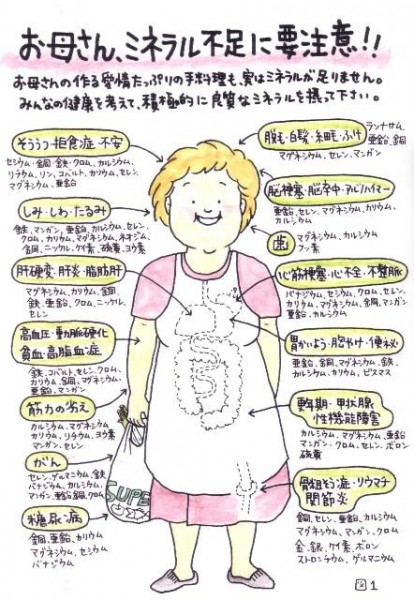 お母さん、ミネラル不足に要注意!!
お母さんの作る愛情たっぷりの手料理も、実はミネラルが足りません。
みんなの健康を考えて、積極的に良質なミネラルを摂って下さい。
そううつ・拒食症・不安
セシウム・金銅・鉄・クロム、カルシウム、
リチウム、リン、コバルト、カリウム、セレン、
マグネシウム、亜鉛
しみ・しわ・たるみ
鉄、マンガン、亜鉛、カルシウム、セレン、
クロム、カリウム、マグネシウム、ネオジム、
金銅、ニッケル、ケイ素、硫黄、ヨウ素
肝硬変・肝炎・脂肪肝
マグネシウム、カリウム、金銅、
鉄、亜鉛、クロム、ニッケル、
セレン
高血圧・動脈硬化
貧血・高脂血症
鉄、コバルト、セレン、クロム、
カリウム、金銅、マグネシウム、
亜鉛、マンガン
筋力の劣え
カルシウム、マグネシウム
カリウム、リチウム、ヨウ素
マンガン、セレン
がん
セレン、ゲルマニウム、金鉄
バナジウム、カルシウム、
マンガン、亜鉛、金銅、クロム
糖尿病
金銅、亜鉛、カリウム
マグネシウム、セシウム
バナジウム
脱毛・白髪・細毛・ふけ
ランナサム、
亜鉛、金銅
マグネシウム、セレン、マンガン
脳梗塞・脳卒中・アルツハイマー
亜鉛、セレン、マグネシウム、カリウム、
カルシウム
歯
マグネシウム、カルシウム
フッ素
心筋梗塞・心不全・不整脈
バナジウム、セシウム、クロム、セレン、
カリウム、マグネシウム、金銅、マンガン
亜鉛、カルシウム
胃かいよう・胸やけ・便秘
亜鉛、金銅、マグネシウム、鉄、
カルシウム、カリウム、ビスマス
更年期・甲状腺
性機能障害
カルシウム、マグネシウム、亜鉛、
マンガン、クロム、セレン、ホロン
硫黄
骨粗そう症・リウマチ
関節炎
金銅、セレン、亜鉛、カルシウム
マグネシウム、マンガン、クロム
金、銀、ケイ素、ボロン
ストロンチウム、ゲルマニウム
SUPE
図1